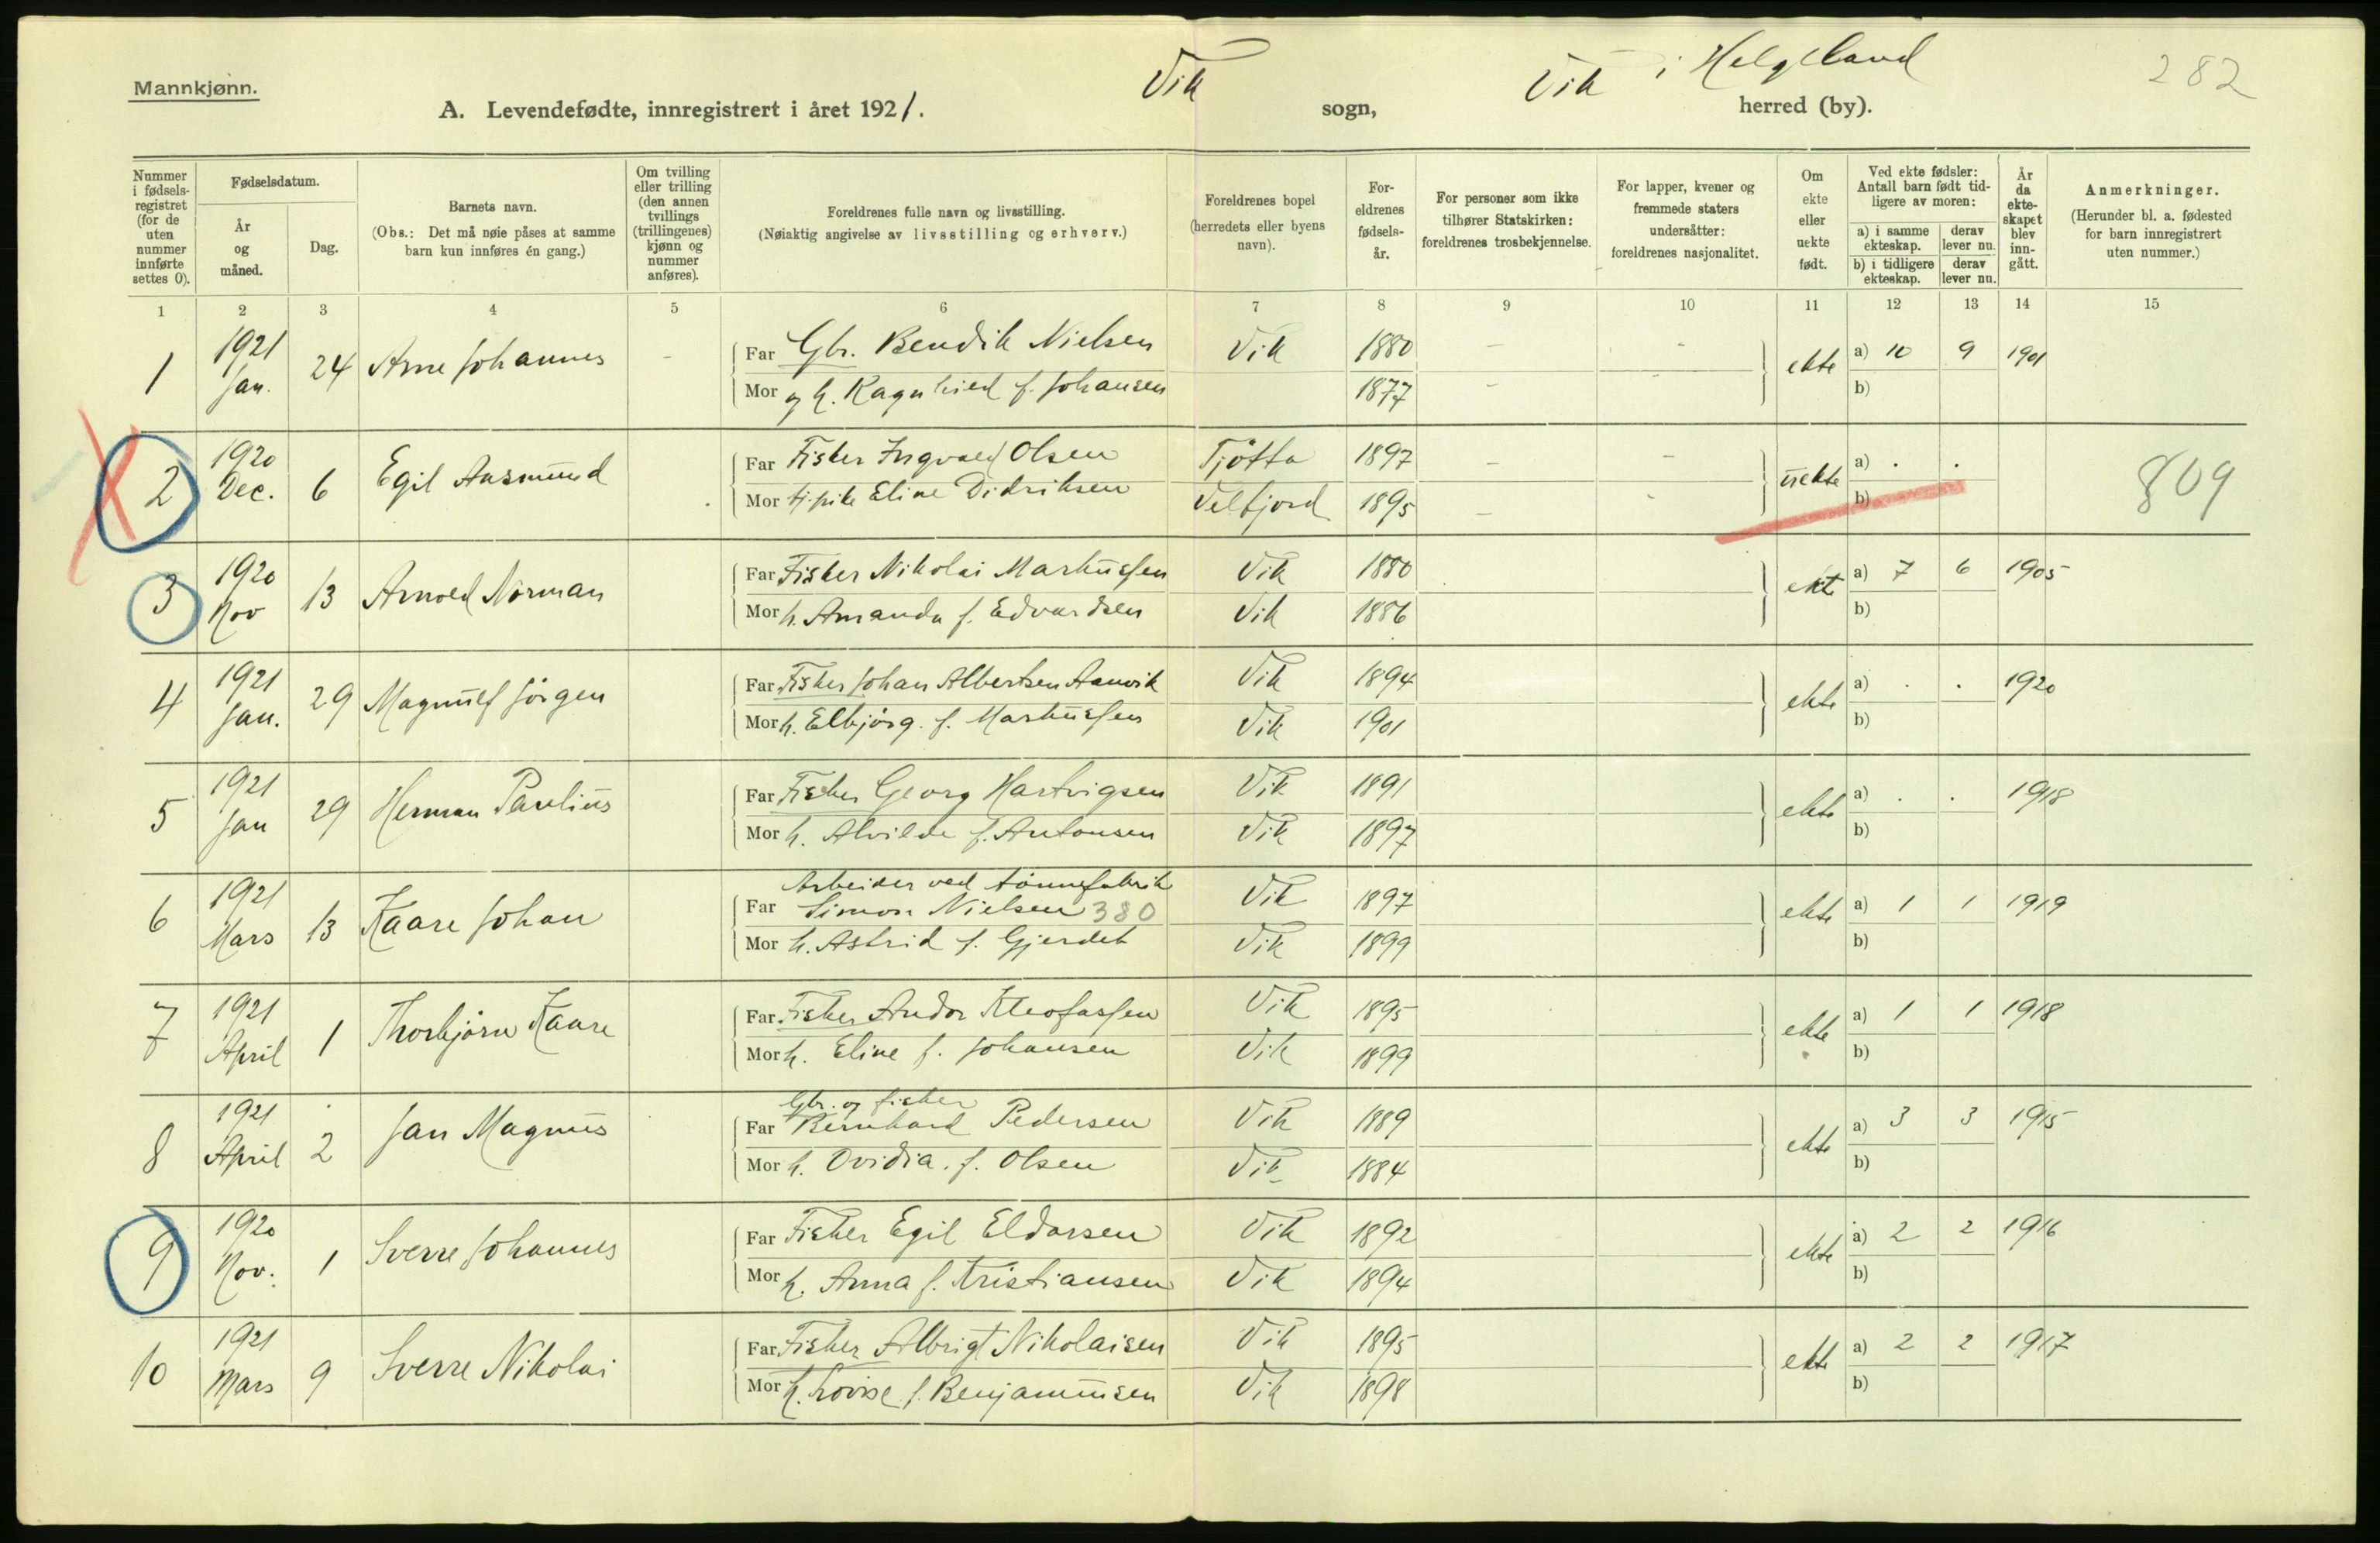 Mannkjønn.
A. Levendefødte, innregistrert i året 1921. Vik sogn, Vik i Helgeland herred (by). 282
Nummer i fødselsregistret (for de uten nummer innførte settes 0).
Fødselsdatum.
År og måned.
Dag.
Barnets navn.
(Obs.: Det må nøie påses at samme barn kun innføres én gang.)
Om tvilling eller trilling (den annen tvillings (trillingenes) kjønn og nummer anføres).
Foreldrenes fulle navn og livsstilling.
(Nøiaktig angivelse av livsstilling og erhverv.)
Foreldrenes bopel (herredets eller byens navn).
Foreldrenes fødselsår.
For personer som ikke tilhører Statskirken: foreldrenes trosbekjennelse.
For lapper, kvener og fremmede staters undersåtter: foreldrenes nasjonalitet.
Om ekte eller uekte født.
Ved ekte fødsler: Antall barn født tidligere av moren:
a) i samme ekteskap. derav lever nu.
b) i tidligere ekteskap. derav lever nu.
År da ekteskapet blev inngått.
Anmerkninger.
(Herunder bl. a. fødested for barn innregistrert uten nummer.)
1 2 3 4 5 6 7 8 9 10 11 12 13 14 15
1 1921 Jan. 24 Arne Johannes - Far Gbr. Bendik Nielsen Vik 1880 - - ekte a) 10 9 1901
Mor og h. Ragnhild f. Johansen 1877 - - b)
2 1920 Dec. 6 Egil Aasmund Far Fisker Ingvald Olsen Tjøtta 1897 - - uekte a) . . 809
Mor tj.pike Eline Didriksen Velfjord 1895 - - b)
3 1920 Nov 13 Arnold Norman Far Fisker Nikolai Markussen Vik 1880 ekte a) 7 6 1905
Mor h. Amanda f. Edvardsen Vik 1886 b)
4 1921 Jan. 29 Magnulf Jörgen Far Fisker Johan Albertsen Aanvik Vik 1894 ekte a) . . 1920
Mor h. Elbjörg. f. Markussen Vik 1901 b)
5 1921 Jan 29 Herman Paulius Far Fisker Georg Hartvigsen Vik 1891 ekte a) . . 1918
Mor h. Alvilde f. Antonsen Vik 1897 b)
6 1921 Mars 13 Kaare Johan Arbeider ved tönnefabrik
Far Simon Nielsen 380 Vik 1897 ekte a) 1 1 1919
Mor h. Astrid f. Gjerdet Vik 1899 b)
7 1921 April 1 Thorbjørn Kaare Far Fisker Andor Kleofassen Vik 1895 ekte a) 1 1 1918
Mor h. Eline f. Johansen Vik 1899 b)
8 1921 April 2 Jan Magnus Gbr. og fisker
Far Bernhard Pedersen Vik 1889 ekte a) 3 3 1915
Mor h. Ovidia. f. Olsen Vik 1884 b)
9 1920 Nov. 1 Sverre Johannes Far Fisker Egil Eldorsen Vik 1892 ekte a) 2 2 1916
Mor h. Anna f. Kristiansen Vik 1894 b)
10 1921 Mars 9 Sverre Nikolai Far Fisker Albrigt Nikolaisen Vik 1895 ekte a) 2 2 1917
Mor h. Lovise f. Benjaminsen Vik 1898 b)